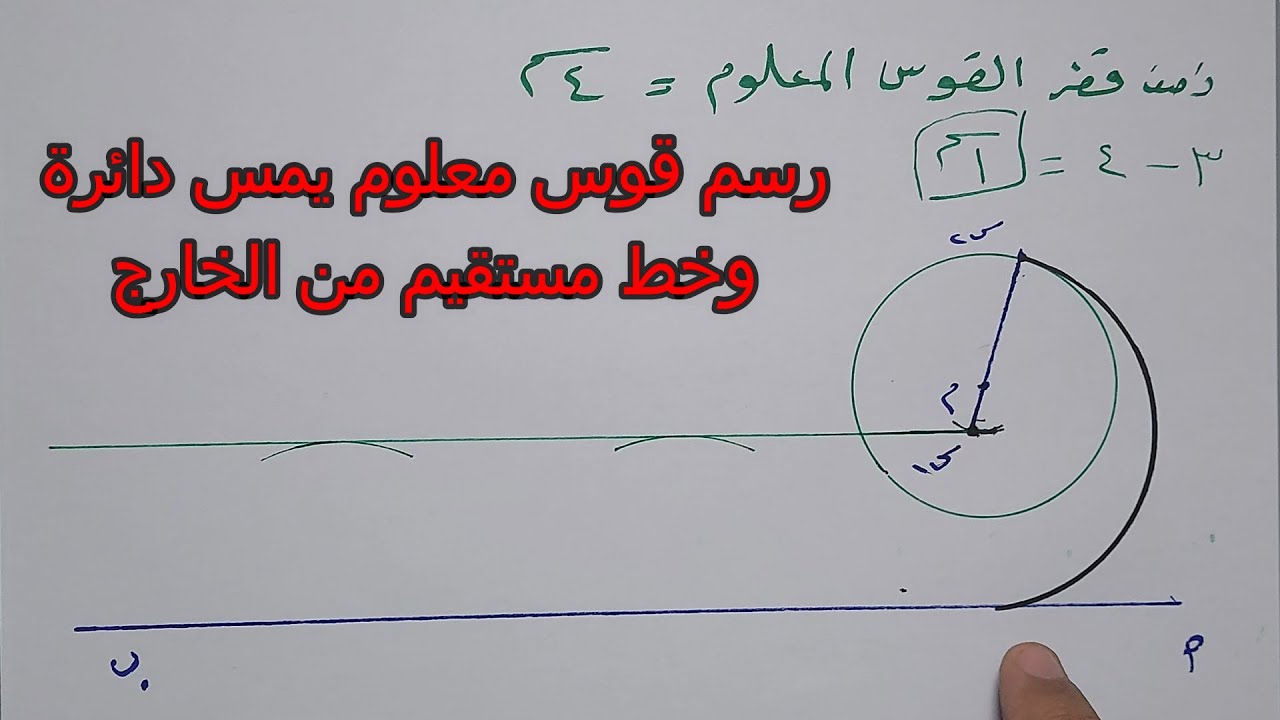 نصف قطر القوس المعلوم = ٤سم
٤ - ٣ = ١سم
رسم قوس معلوم يمس دائرة
وخط مستقيم من الخارج
س٢
م
س١
ب
م